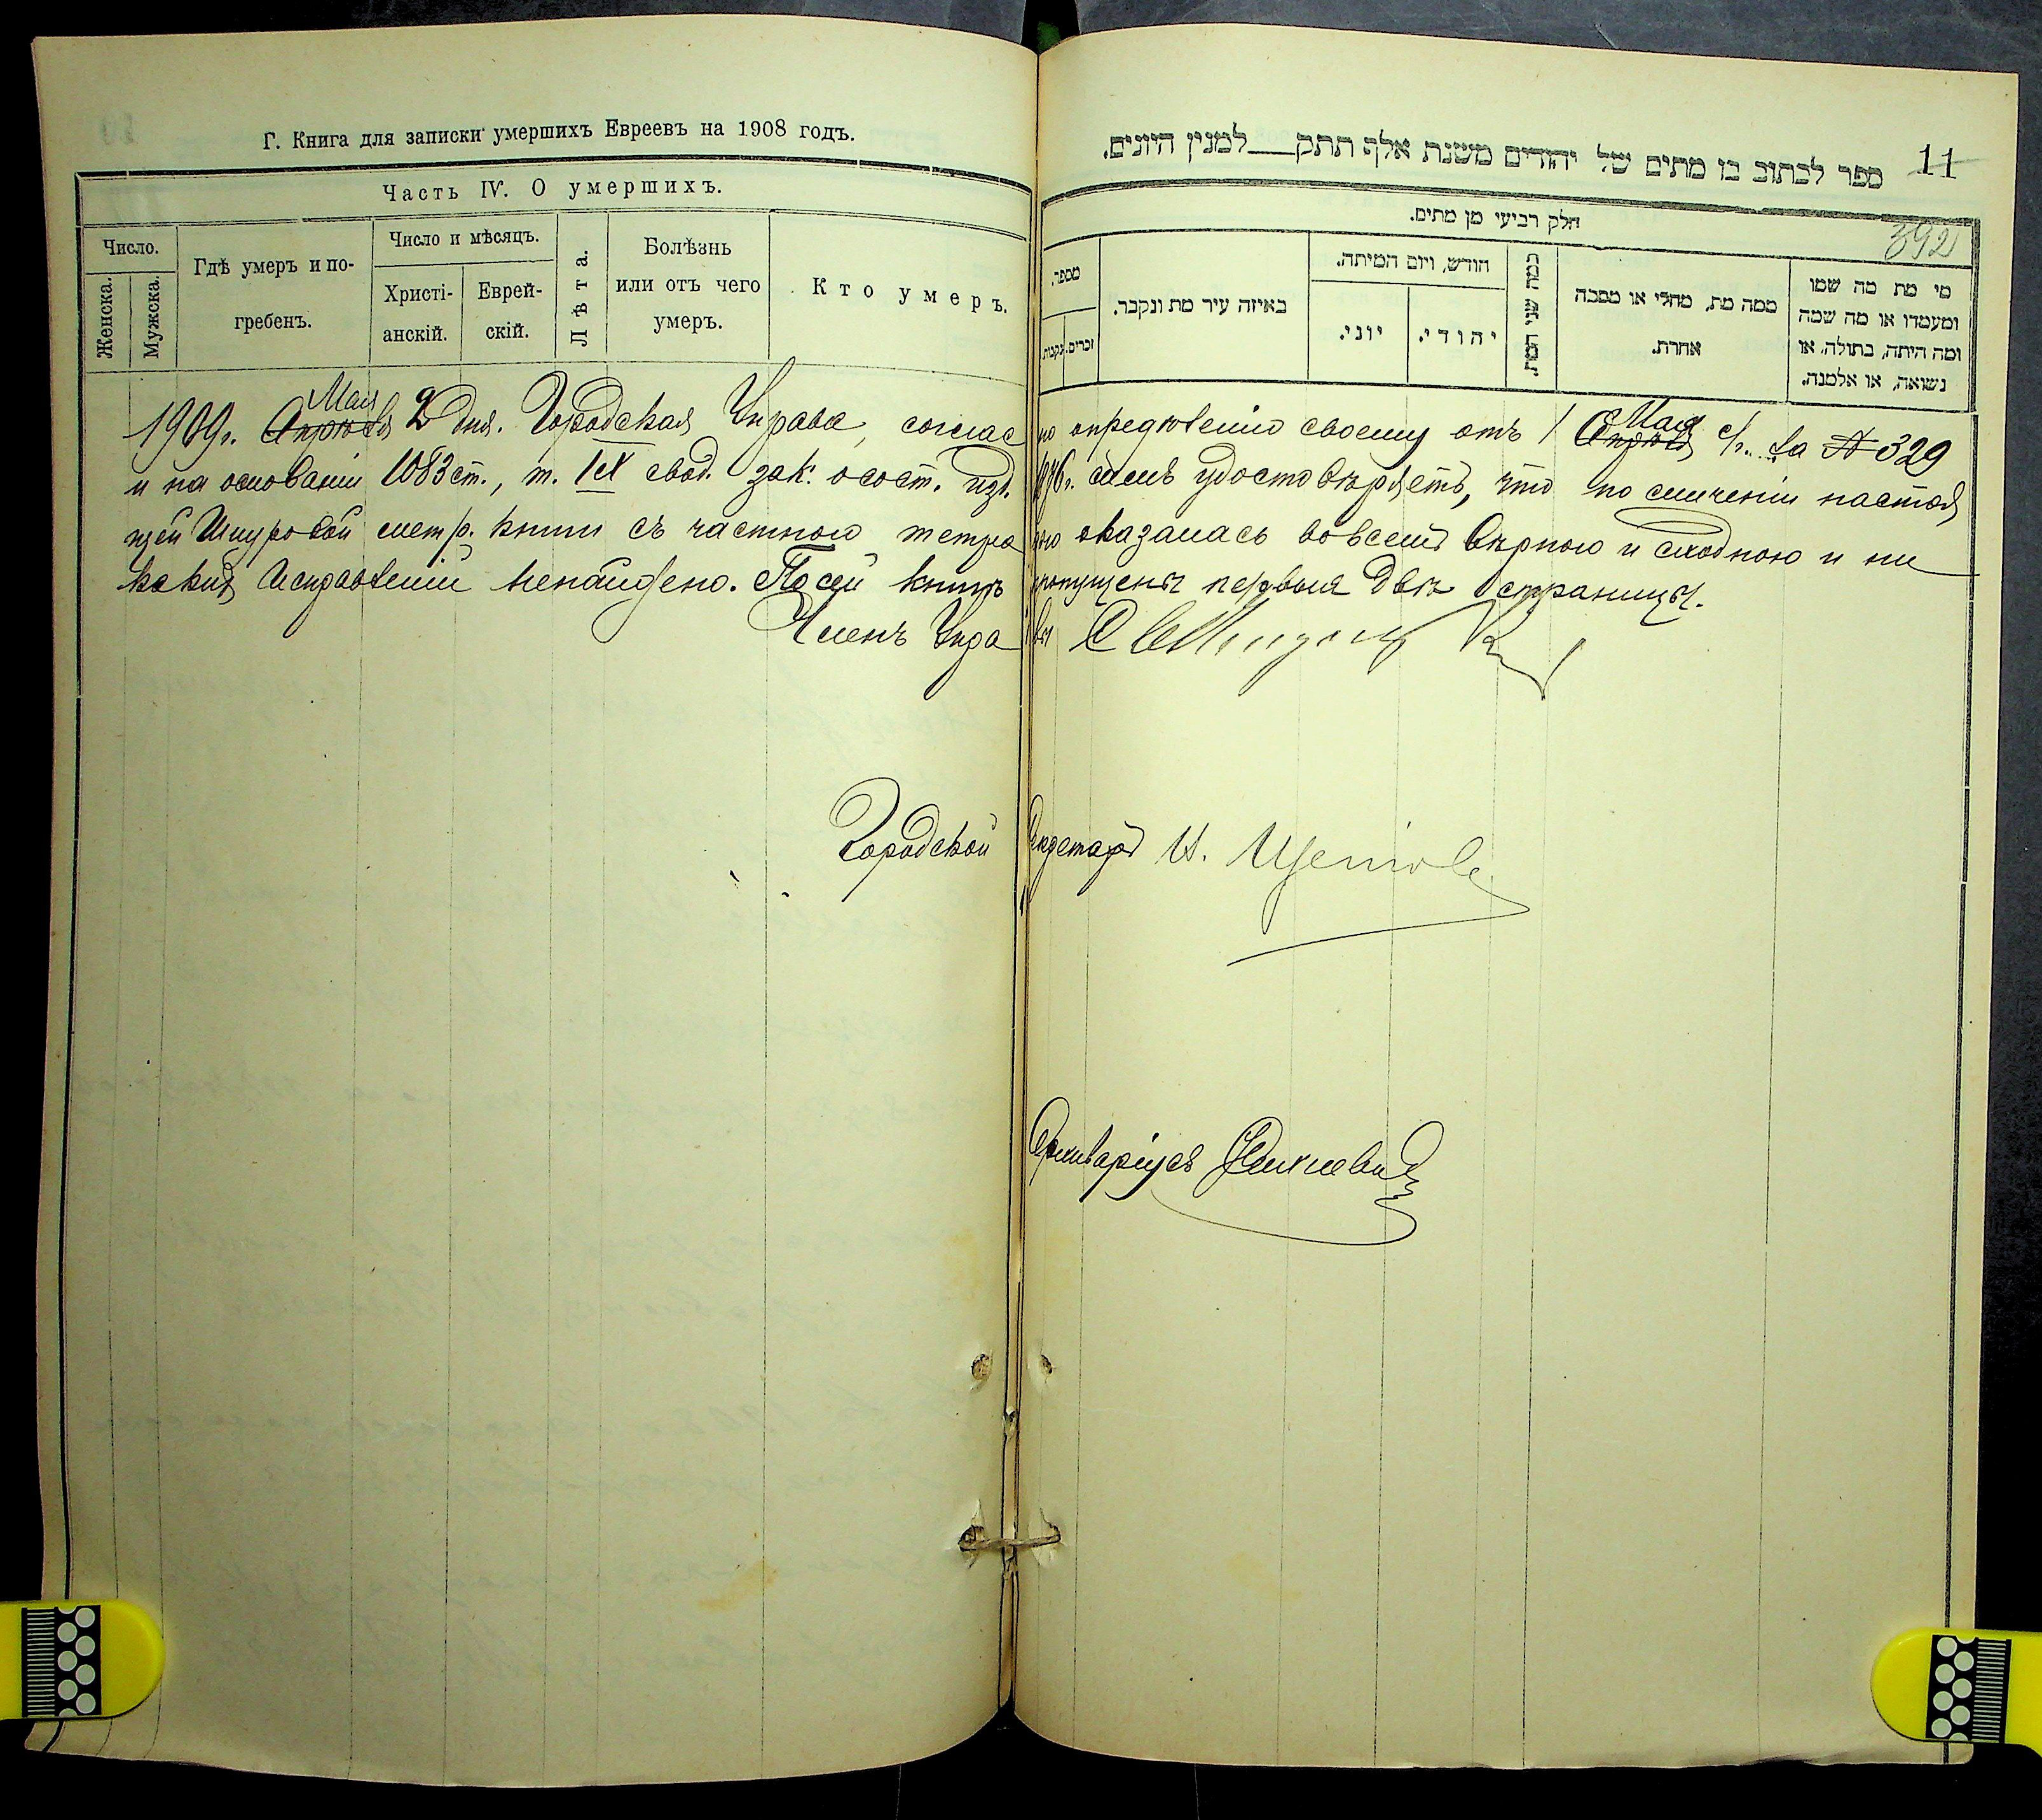 Г. Книга для записки умершихъ Евреевъ на 1908 годъ.
Часть IV. О умершихъ.
Число.
Женска.
Мужска.
Гдѣ умеръ и по-
гребенъ.
Число и мѣсяцъ.
Христі-
анскій.
Еврей-
скій.
Лѣта.
Болѣзнь
или отъ чего
умеръ.
Кто умеръ.
11
ספר לכתוב בו מתים של יהודים משנת אלף תתק___למנין היונים.
392
חלק רביעי מן מתים.
מספר.
זכרים.
נקבות.
באיזה עיר מת ונקבר.
חודש, ויום המיתה.
יוני.
יהודי.
כמה שני המת.
ממה מת, מחלי או מסבה
אחרת.
מי מת מה שמו
ומעמדו או מה שמה
ומה היתה, בתולה, או
נשואה, או אלמנה.
Мая Мая
1909г. Апрѣля 2 дня. Городская Управа, соглас но опредѣленію своему отъ 1 Апрѣля с/г. за № 329
и на основаніи 1083 ст., т. IX свод. зак. о сост. изд. 1876г. симъ удостовѣряетъ, что по сличеніи настоя
щей Шнуровой метр. книги съ частною тетра дью оказалась вовсемъ вѣрною и сходною и ни
какихъ исправленій ненайдено. По сей книгѣ пропущены первыя двѣ страницы.
Членъ Упра вы
Городской Секретарь И.
Архиваріусъ